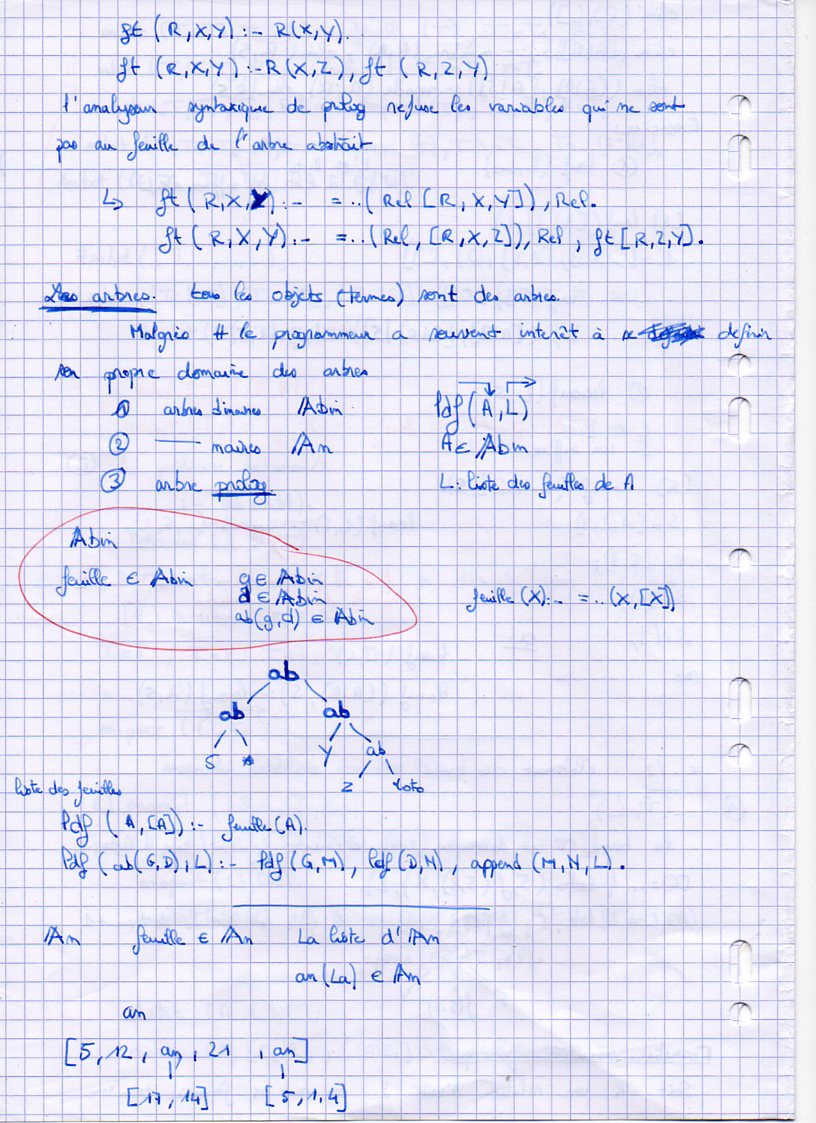 ft (R,X,Y) :- R(X,Y).
ft (R,X,Y) :- R(X,Z), ft (R,Z,Y)
l'analyseur syntaxique de prolog refuse les variables qui ne sont
pas au feuille de l'arbre abstrait
↳ ft(R,X,Y) :- =..(Rel [R,X,Y]), Rel.
ft(R,X,Y) :- =..(Rel, [R,X,Z]), Rel, ft[R,Z,Y].
Les arbres. tous les objets (termes) sont des arbres.
Malgrès # le programmeur a souvent interêt à se definir
son propre domaine des arbres
① arbres binaires Abin
ldf(A,L)
② —— naires An
A ∈ Abin
③ arbre prolog.
L: liste des feuilles de A
Abin
feuille ∈ Abin g ∈ Abin
d ∈ Abin
feuille(X) :- =..(X,[X])
ab(g,d) ∈ Abin
ab
ab ab
5 * Y ab
Z toto
liste des feuilles
ldf (A,[A]) :- feuille(A).
ldf (ab(G,D),L) :- ldf(G,M), ldf(D,N), append (M,N,L).
An feuille ∈ An La liste d'An
an(La) ∈ An
an
[5, 12, an, 21, an]
[17, 14] [5,1,4]